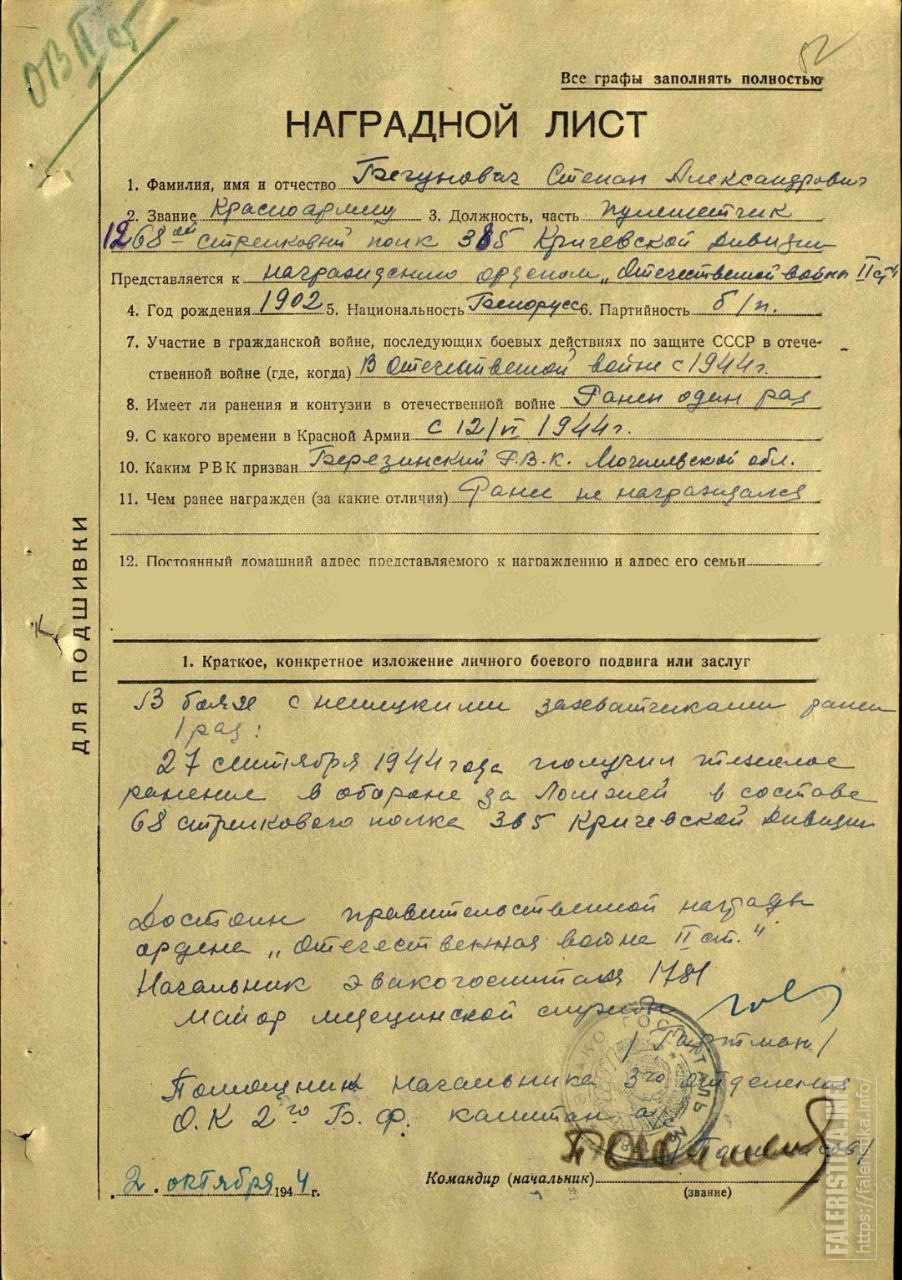 ОВ II ст
Все графы заполнять полностью
НАГРАДНОЙ ЛИСТ
1. Фамилия, имя и отчество Бегунович Степан Александрович
2. Звание Красноармеец 3. Должность, часть пулеметчик
1268 ой стрелковый полк 385 Кричевской дивизии
Представляется к награждению орденом „Отечественной войны II ст“
4. Год рождения 1902 5. Национальность Белорусс 6. Партийность б/п.
7. Участие в гражданской войне, последующих боевых действиях по защите СССР в отече-
ственной войне (где, когда) В Отечественной войне с 1944 г.
8. Имеет ли ранения и контузии в отечественной войне Ранен один раз
9. С какого времени в Красной Армии с 12/VI 1944 г.
10. Каким РВК призван Березинский Р.В.К. Могилевской обл.
11. Чем ранее награжден (за какие отличия) Ранее не награждался
12. Постоянный домашний адрес представляемого к награждению и адрес его семьи
ДЛЯ ПОДШИВКИ
1. Краткое, конкретное изложение личного боевого подвига или заслуг
В боях с немецкими захватчиками ранен
1 раз:
27 сентября 1944 года получил тяжелое
ранение в обороне за Ломжей в составе
68 стрелкового полка 385 Кричевской дивизии
Достоин правительственной награды
ордена „Отечественная война II ст.“
Начальник эвакогоспиталя 1781
майор медицинской службы
/Гартман/
Помощник начальника 3го отделения
О.К 2го Б.Ф. капитан а/с
2. октября 1944 г.
Командир (начальник)
(звание)
FALERISTIKA.INFO
https://faleristika.info